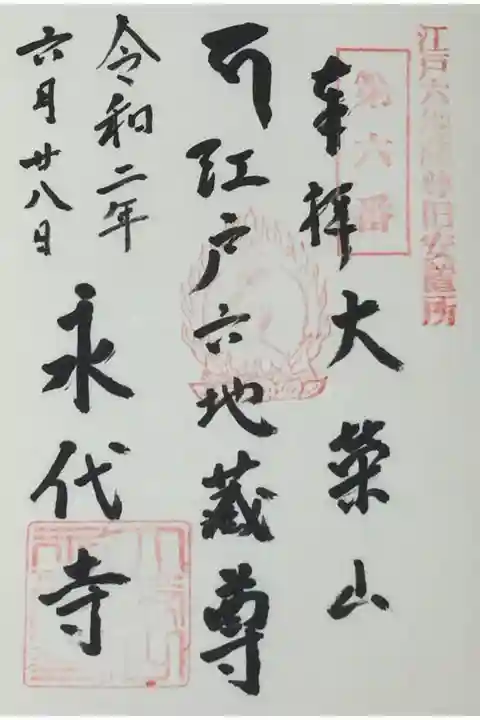 江戸六地蔵尊旧安置所
第六番
奉拝 大榮山
江戸六地蔵尊
令和二年
六月廿八日
永代寺